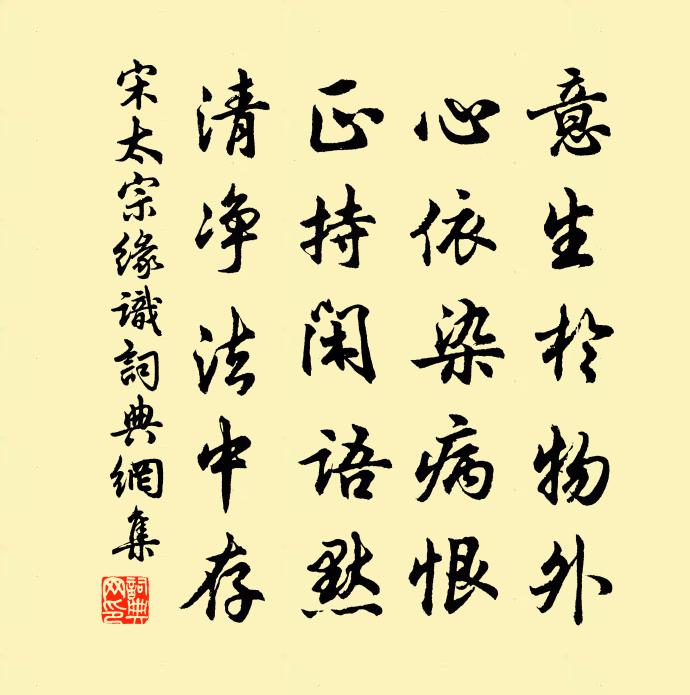 意生於物外
心依染病恨
正持閑語默
清净法中存
宋太宗緣識詞典網集
詞典網印